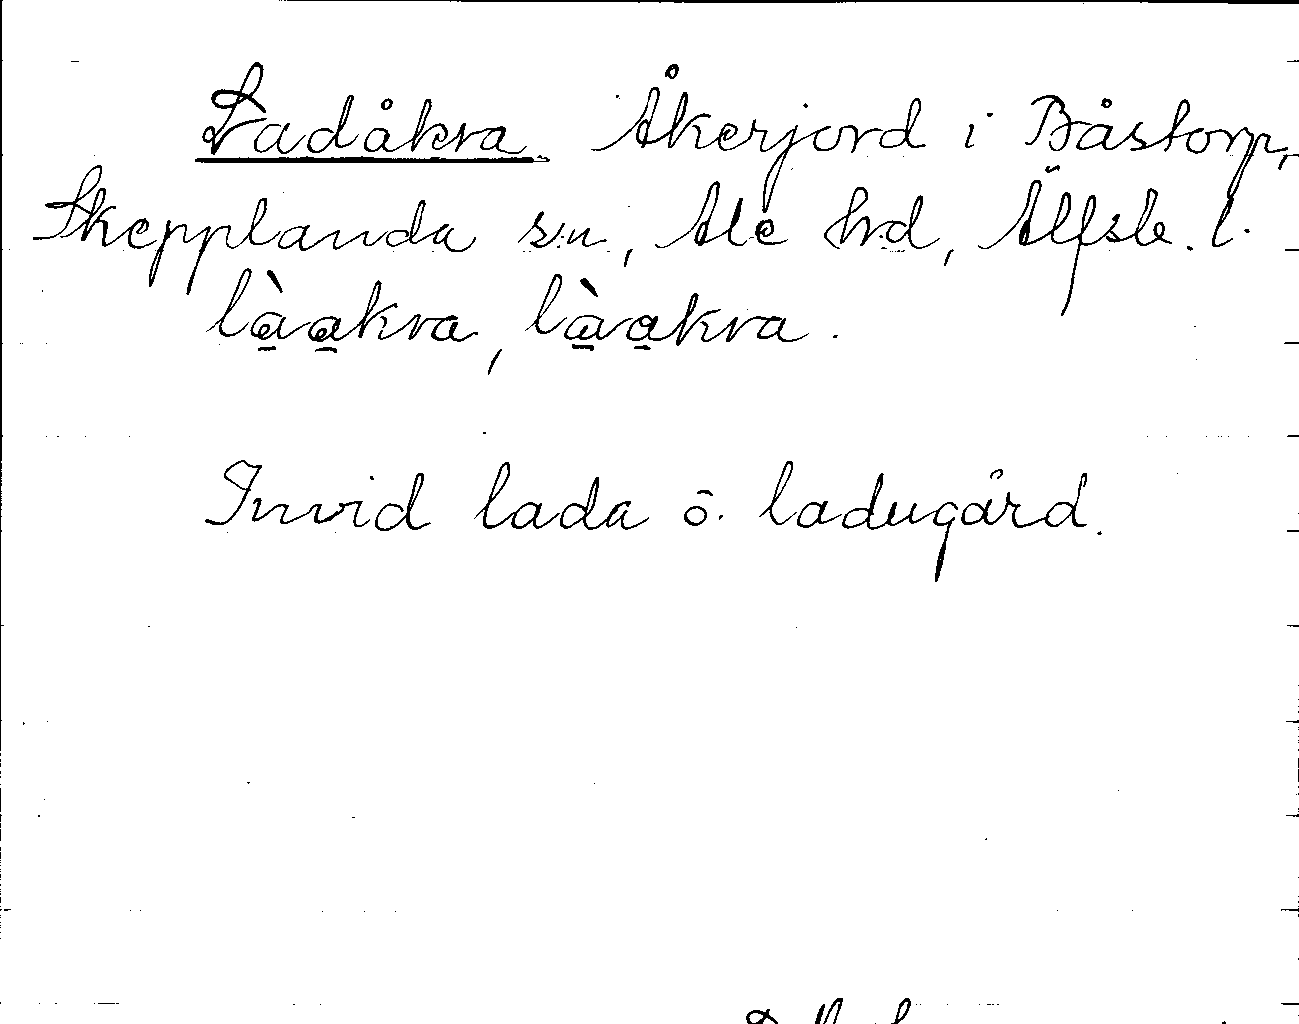 Ladåkra. Åkerjord i Båstorp,
Skepplanda sn, Ale hd, Älfsb. l.
là̱a̱kra, là̱a̱kra.
Invid lada o. ladugård.